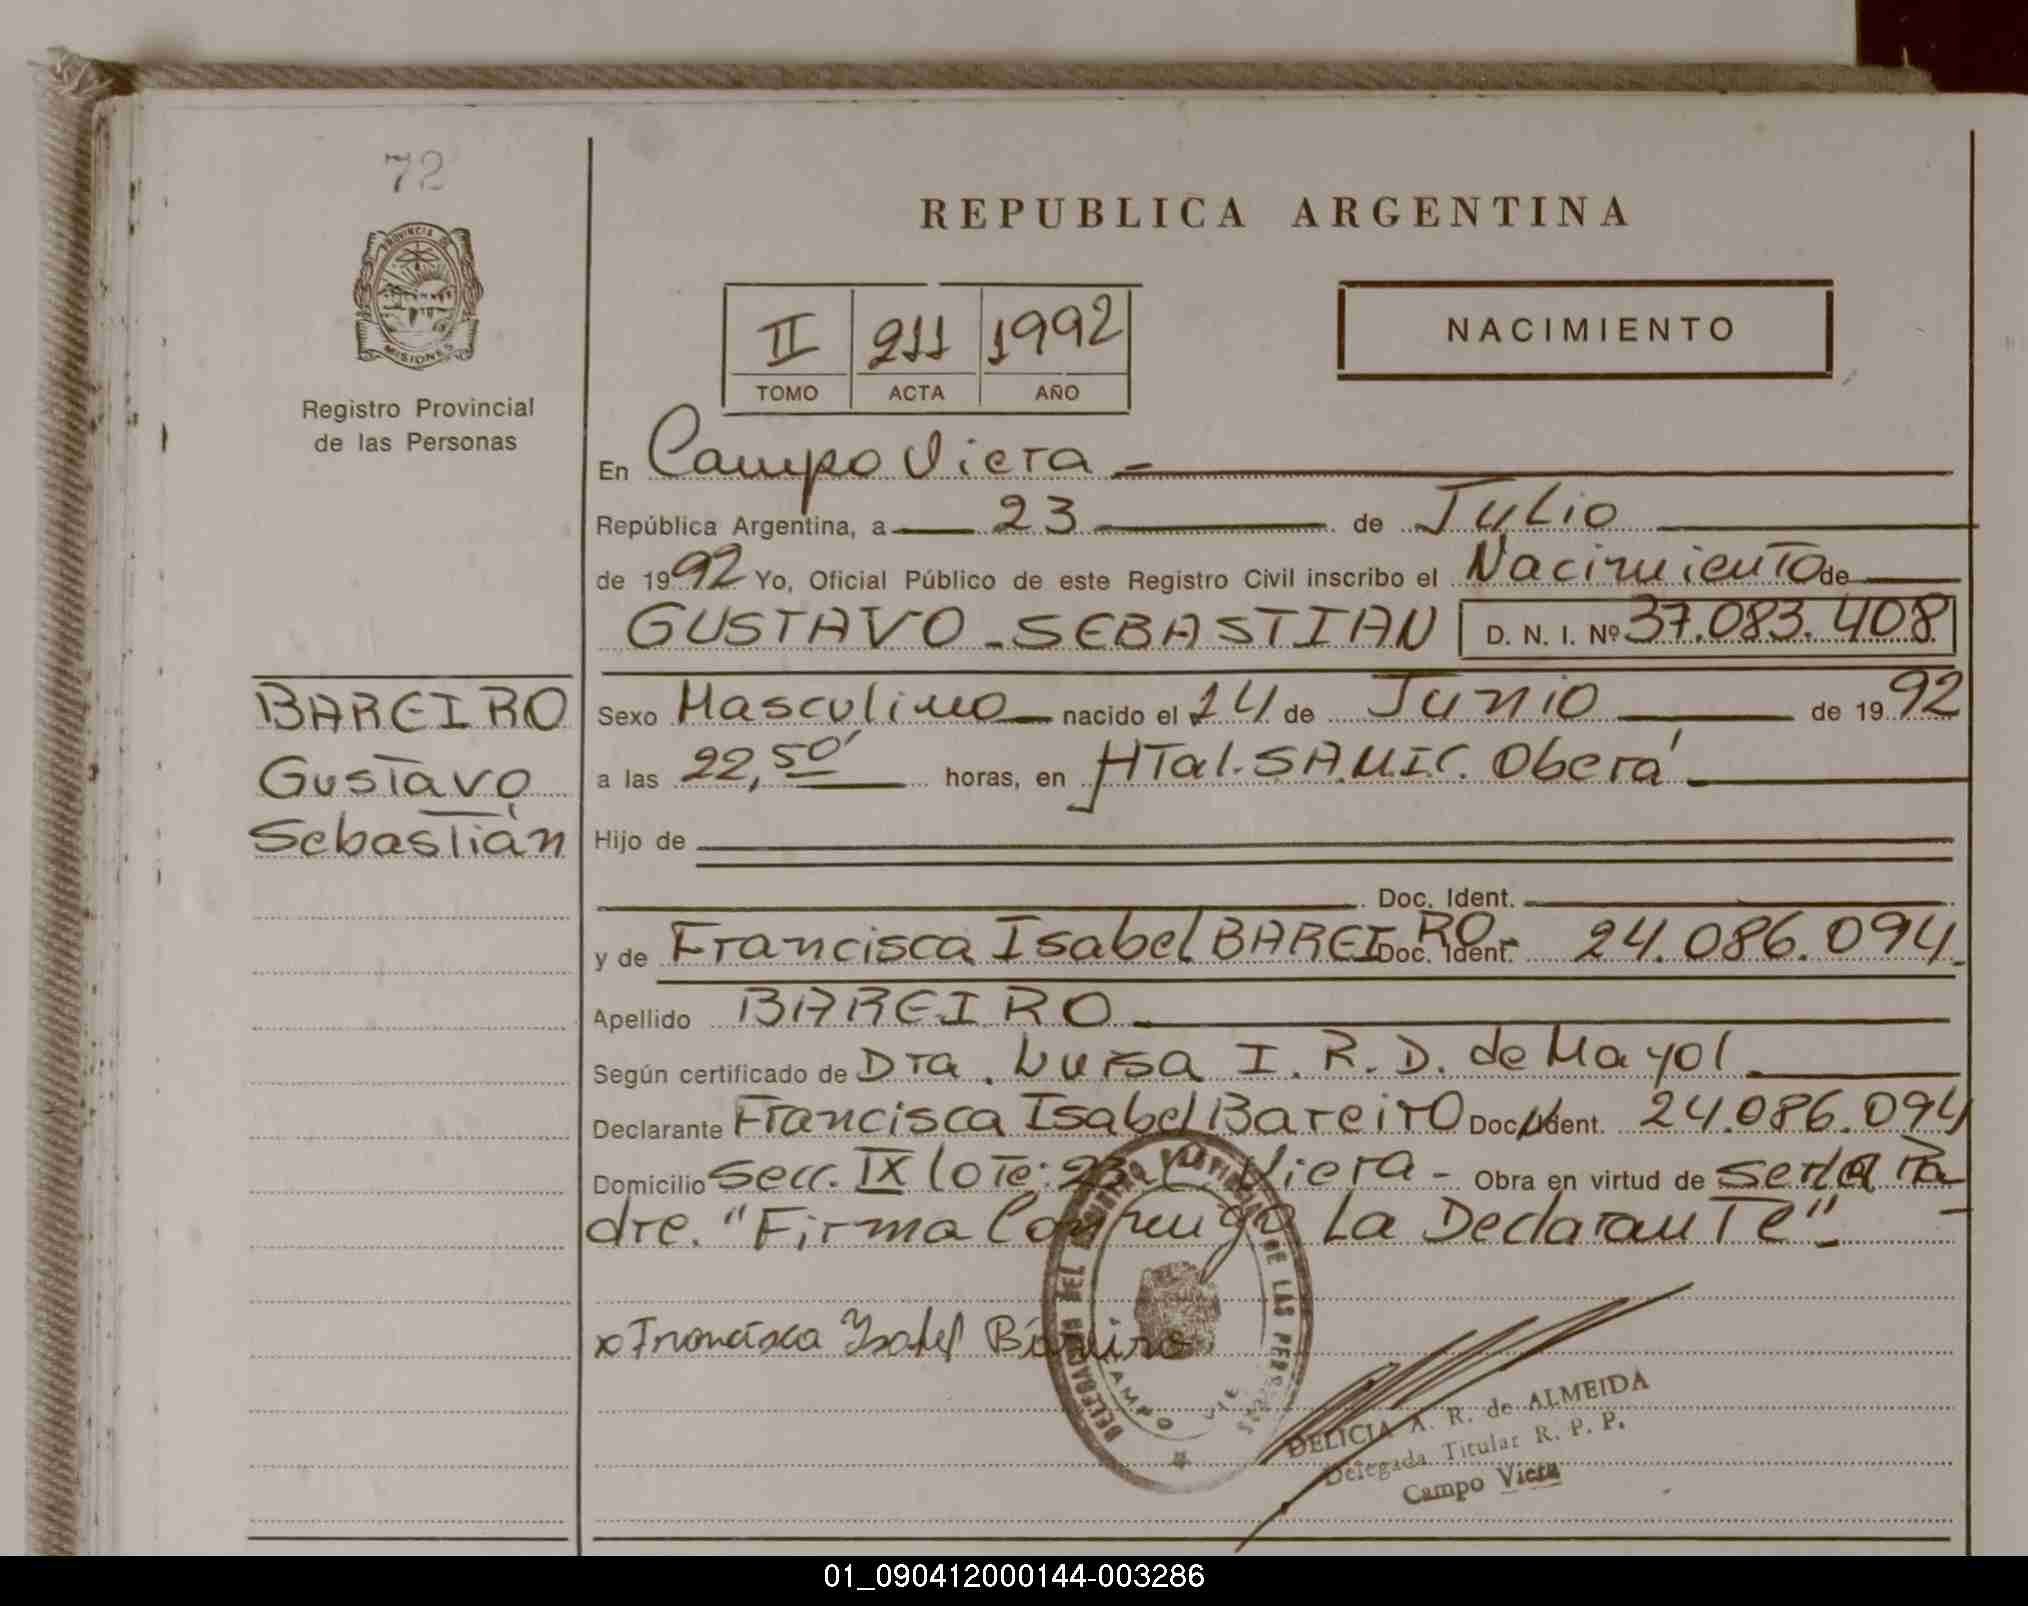 72
PROVINCIA DE
MISIONES
Registro Provincial
de las Personas
REPUBLICA ARGENTINA
II 211 1992
TOMO ACTA AÑO
NACIMIENTO
En Campo Viera
República Argentina, a 23 de Julio
de 1992 Yo, Oficial Público de este Registro Civil inscribo el Nacimiento de
GUSTAVO - SEBASTIAN D. N. I. Nº 37.083.408
BAREIRO
Gustavo
Sebastián
Sexo Masculino nacido el 14 de Junio de 1992
a las 22,50' horas, en HTal. SAMIC. Oberá
Hijo de
Doc. Ident.
y de Francisca Isabel BAREIRO - Doc. Ident. 24.086.094
Apellido BAREIRO
Según certificado de Dra. Luisa I. R. D. de Mayol
Declarante Francisca Isabel Bareiro Doc. Ident. 24.086.094
Domicilio Secc. IX lote: 23 C. Viera - Obra en virtud de ser la Ma
dre. "Firma Conmigo La Declarante"
x Francisca Ysabel Bareiro
DELEGACION DEL REGISTRO PROVINCIAL DE LAS PERSONAS
CAMPO VIERA
DELICIA A. R. de ALMEIDA
Delegada Titular R. P. P.
Campo Viera
01_090412000144-003286